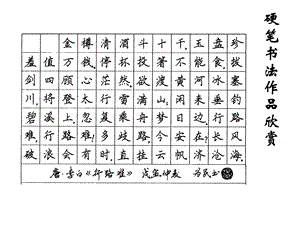 硬笔书法作品欣赏
金樽清酒斗十千,玉盘珍
羞值万钱.停杯投箸不能食,拔
剑四顾心茫然.欲渡黄河冰塞
川,将登太行雪满山.闲来垂钓
碧溪上,忽复乘舟梦日边.行路
难,行路难,多歧路,今安在.长风
破浪会有时,直挂云帆济沧海.
唐·李白《行路难》